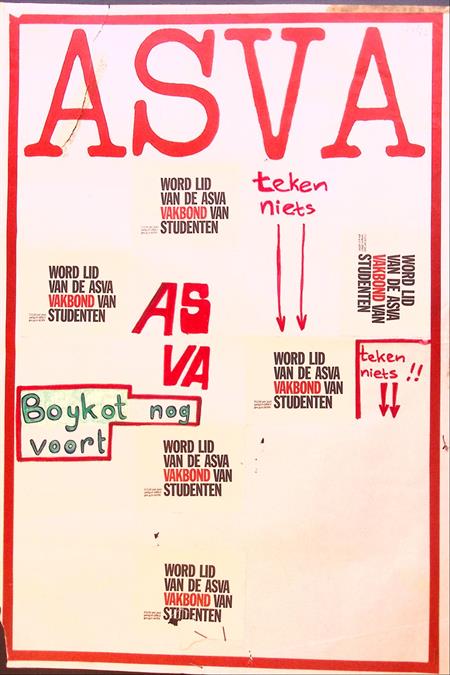 ASVA
WORD LID
VAN DE ASVA
VAKBOND VAN
STUDENTEN
teken
niets
WORD LID
VAN DE ASVA
VAKBOND VAN
STUDENTEN
WORD LID
VAN DE ASVA
VAKBOND VAN
STUDENTEN
AS
VA
WORD LID
VAN DE ASVA
VAKBOND VAN
STUDENTEN
teken
niets !!
Boykot nog
voort
WORD LID
VAN DE ASVA
VAKBOND VAN
STUDENTEN
WORD LID
VAN DE ASVA
VAKBOND VAN
STUDENTEN